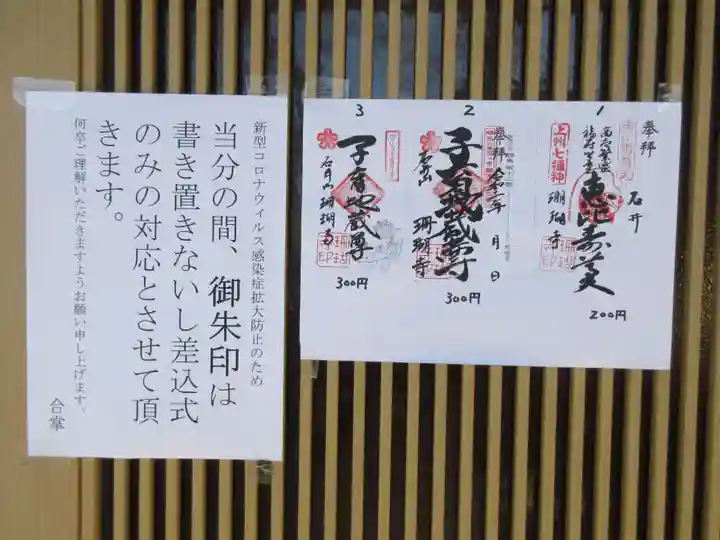 新型コロナウィルス感染症拡大防止のため
当分の間、御朱印は
書き置きないし差込式
のみの対応とさせて頂
きます。
何卒ご理解いただきますようお願い申し上げます。
合掌
1
奉拝
石井
恵比寿
上州七福神
珊瑚寺
200円
2
奉拝 令和二年 月 日
子育地蔵尊
石井山 珊瑚寺
300円
3
子育地蔵尊
石井山 珊瑚寺
300円